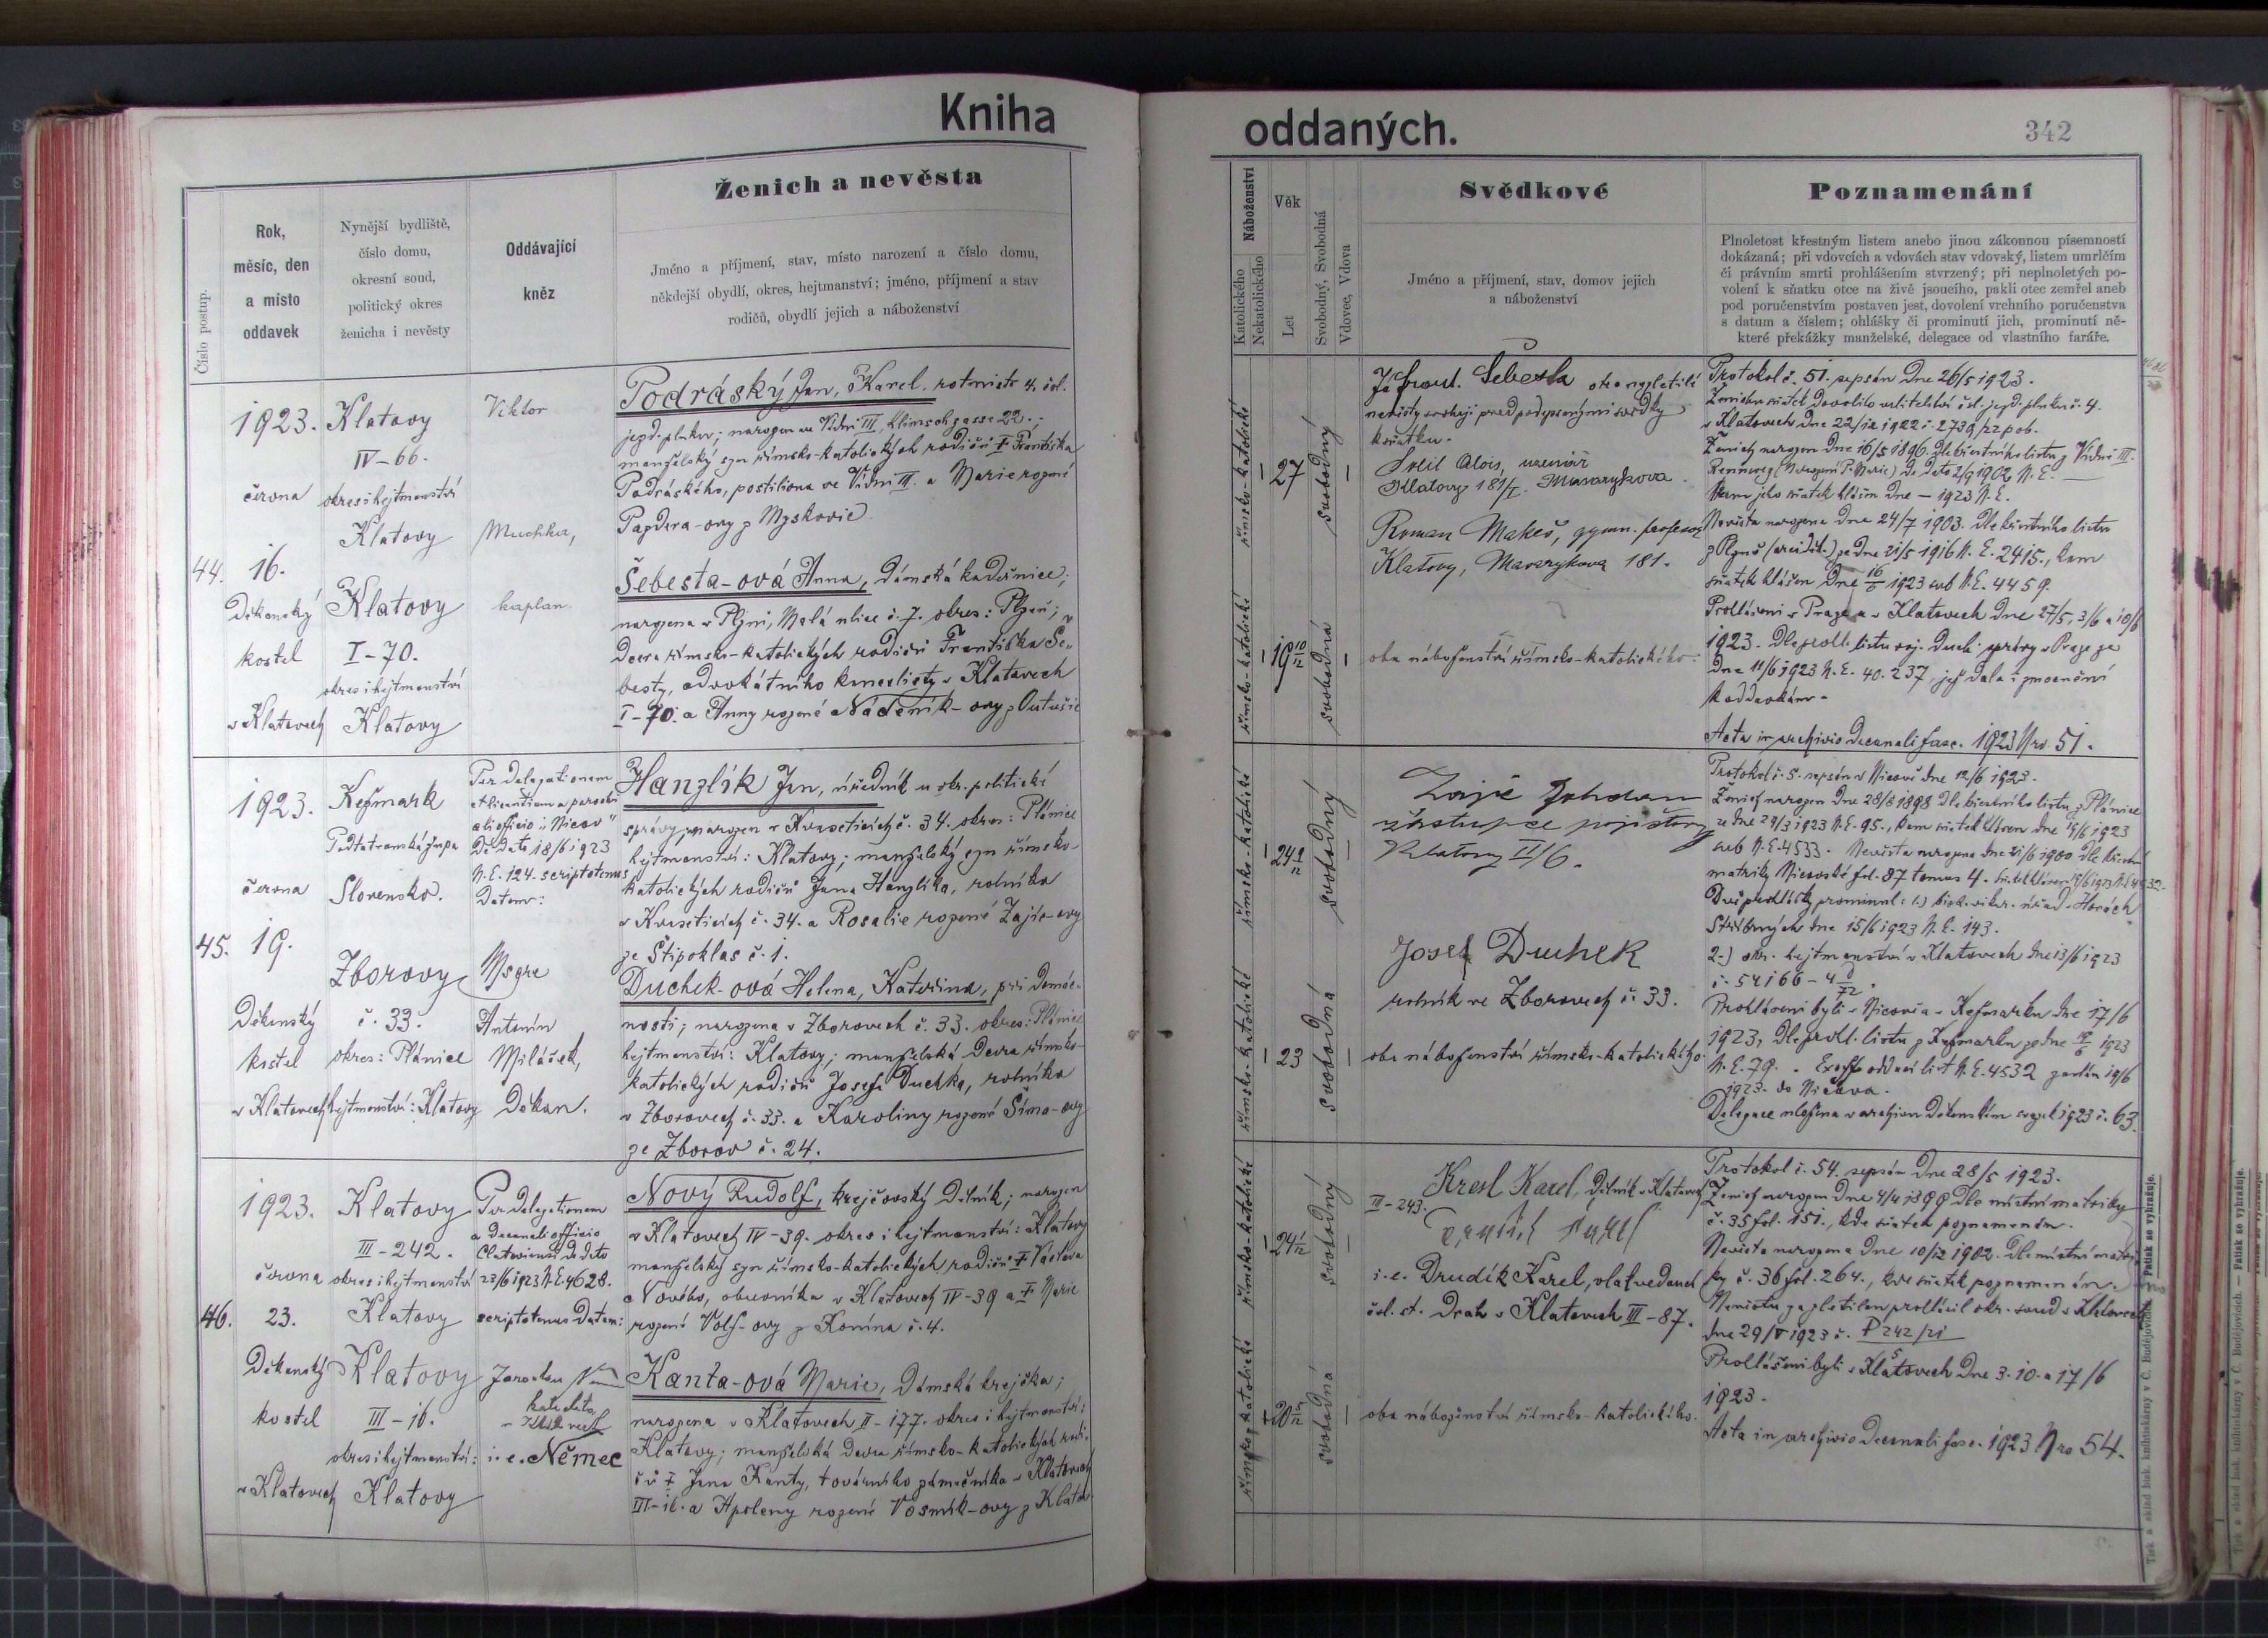 Kniha
oddaných.
342
Číslo postup.
Rok,
měsíc, den
a místo
oddavek
Nynější bydliště,
číslo domu,
okresní soud,
politický okres
ženicha i nevěsty
Oddávající
kněz
Ženich a nevěsta
Jméno a příjmení, stav, místo narození a číslo domu,
někdejší obydlí, okres, hejtmanství; jméno, příjmení a stav
rodičů, obydlí jejich a náboženství
Náboženství
Katolického
Nekatolického
Věk
Let
Svobodný, Svobodná
Vdovec, Vdova
Svědkové
Jméno a příjmení, stav, domov jejich
a náboženství
Poznamenání
Plnoletost křestným listem anebo jinou zákonnou písemností
dokázaná; při vdovcích a vdovách stav vdovský, listem umrlčím
či právním smrti prohlášením stvrzený; při neplnoletých po-
volení k sňatku otce na živě jsoucího, pakli otec zemřel aneb
pod poručenstvím postaven jest, dovolení vrchního poručenstva
s datum a číslem; ohlášky či prominutí jich, prominutí ně-
které překážky manželské, delegace od vlastního faráře.
44.
1923.
června
16.
Děkanský
kostel
v Klatovech
Klatovy
IV-66.
okres i hejtmanství
Klatovy
Klatovy
I-70.
okres i hejtmanství
Klatovy
Viktor
Muchka,
kaplan.
Podráský Jan, Karel, rotmistr 4. čsl.
jezd. pluku; narozen ve Vídni III, Klimschgasse 22.;
manželský syn římsko-katolických rodičů † Františka
Podráského, postiliona ve Vídni III. a Marie rozené
Papdera-ovy z Myskovic
Šebesta-ová Anna, dámská kadeřnice;
narozena v Plzni, Malá ulice č. 7. okres: Plzeň;
dcera římsko-katolických rodičů Františka Še-
besty, advokátního kancelisty v Klatovech
I-70. a Anny rozené Nádeník-ovy z
římsko-katolické
27
svobodný
římsko-katolické
19 10/12
svobodná
Já Frant. Šebesta otec nezletilé
nevěsty svoluji před podepsanými svědky
k sňatku.
Solil Alois, uzenář
Klatovy 181/I. Masarykova.
Roman Makeš, gymn. profesor
Klatovy, Masarykova 181.
oba náboženství římsko-katolického.
Protokol č. 51. sepsán dne 26/5 1923.
Ženichu sňatek dovolilo velitelství čsl. jezd. pluku č. 4.
v Klatovech dne 22/12 1922 č. 2739/22 pob.
Ženich narozen dne 16/5 1896. Dle křestního listu z Vídně III.
Rennweg (Narození P. Marie) de dato 2/9 1902 N. E. —
kam jeho sňatek hlášen dne — 1923 N. E.
Nevěsta narozena dne 24/7 1903. Dle křestního listu
z Plzně (arciděk.) ze dne 21/5 1916 N. E. 2415., kam
sňatek hlášen dne 16/6 1923 sub N. E. 4459.
Prohlášeni v Praze a v Klatovech dne 27/5, 3/6 a 10/6
1923. Dle prohl. listu voj. duch. správy v Praze ze
dne 11/6 1923 N. E. 40.237, jež dala i zmocnění
k oddavkám.
Acta in archivio decanali fasc. 1923 Nro. 51.
45.
1923.
června
19.
Děkanský
kostel
v Klatovech
Kežmark
Podtatranská župa
Slovensko.
Zborovy
č. 33.
okres: Plánice
hejtmanství: Klatovy
Per delegationem
et licentiam a parochi
ali officio in "Nicov"
de dato 18/6 1923
N. E. 124. scriptotenus
datam:
Msgre
Antonín
Miláček,
děkan.
Hanzlík Jan, úředník u okr. politické
správy, narozen v Kvaseticích č. 34. okres: Plánice
hejtmanství: Klatovy; manželský syn římsko-
katolických rodičů Jana Hanzlíka, rolníka
v Kvaseticích č. 34. a Rosalie rozené Zajíc-ovy
ze Štipoklas č. 1.
Duchek-ová Helena, Kateřina, při domác-
nosti; narozena v Zborovech č. 33. okres: Plánice
hejtmanství: Klatovy; manželská dcera římsko-
katolických rodičů Josefa Duchka, rolníka
v Zborovech č. 33. a Karoliny rozené Šíma-ovy
ze Zborov č. 24.
římsko-katolické
svobodný
římsko-katolické
23
svobodná
Zajíc Johann
zástupce pojišťovny
Klatovy II/6.
Josef Duchek
rolník ve Zborovech č. 33.
oba náboženství římsko-katolického.
Protokol č. 5. sepsán v Nicově dne 12/6 1923.
Ženich narozen dne 28/8 1898 dle křestního listu z Plánice
ze dne 29/3 1923 N. E. 95., kam sňatek hlášen dne 19/6 1923
sub N. E. 4533. Nevěsta narozena dne 21/6 1900 dle křestní
matriky Nicovské fol. 87 tomus 4.
Dvě prohlášky prominul: 1.) bisk. vikar. úřad v Horách
Stříbrných dne 15/6 1923 N. E. 143.
2.) okr. hejtmanství v Klatovech dne 13/6 1923
č. 54166-4
Prohlášeni byli v Nicově a v Kežmarku dne 17/6
1923, dle prohl. listu z Kežmarku ze dne 1923
N. E. 79. Ex offo oddací list N. E. 4532 zaslán 19/6
1923. do Nicova.
Delegace uložena v archivu děkanském svazek 1923 č. 63.
46.
1923.
června
23.
Děkanský
kostel
v Klatovech
Klatovy
III-242.
okres i hejtmanství
Klatovy
Klatovy
III-16.
okres i hejtmanství:
Klatovy
Per delegationem
a decanali officio
Clatoviensi de dato
23/6 1923 N. E. 4628.
scriptotenus datam:
Jaroslav
katecheta
v Klatovech
i. e. Němec
Nový Rudolf, krejčovský dělník; narozen
v Klatovech IV-39. okres i hejtmanství: Klatovy
manželský syn římsko-katolických rodičů † Václava
Nového, obuvníka v Klatovech IV-39 a † Marie
rozené Volf-ovy z Komína č. 4.
Kanta-ová Marie, dámská krejčka;
narozena v Klatovech II-177. okres i hejtmanství:
Klatovy; manželská dcera římsko-katolických rodi-
čů † Jana Kanty, továrního zámečníka v Klatovech
III-16. a Apoleny rozené Vosmík-ovy z Klatov.
římsko-katolické
svobodný
římsko-katolické
svobodná
Kresl Karel, dělník v Klatovech
III-243.
i. e. Drudík Karel, vlakvedoucí
čsl. st. drah v Klatovech III-87.
oba náboženství římsko-katolického.
Protokol č. 54. sepsán dne 28/5 1923.
Ženich narozen dne 4/4 1899 dle místní matriky
č. 35 fol. 151., kde sňatek poznamenán.
Nevěsta narozena dne 10/12 1902. Dle místní matri-
ky č. 36 fol. 264., kde sňatek poznamenán.
Nevěstu za zletilou prohlásil okr. soud v Klatovech
dne 29/V 1923 č. P 242/21
Prohlášeni byli v Klatovech dne 3. 10. a 17/6
1923.
Acta in archivio decanali fasc. 1923 Nro 54.
Tisk a sklad bisk. knihtiskárny v Č. Budějovicích. — Patisk se vyhražuje.